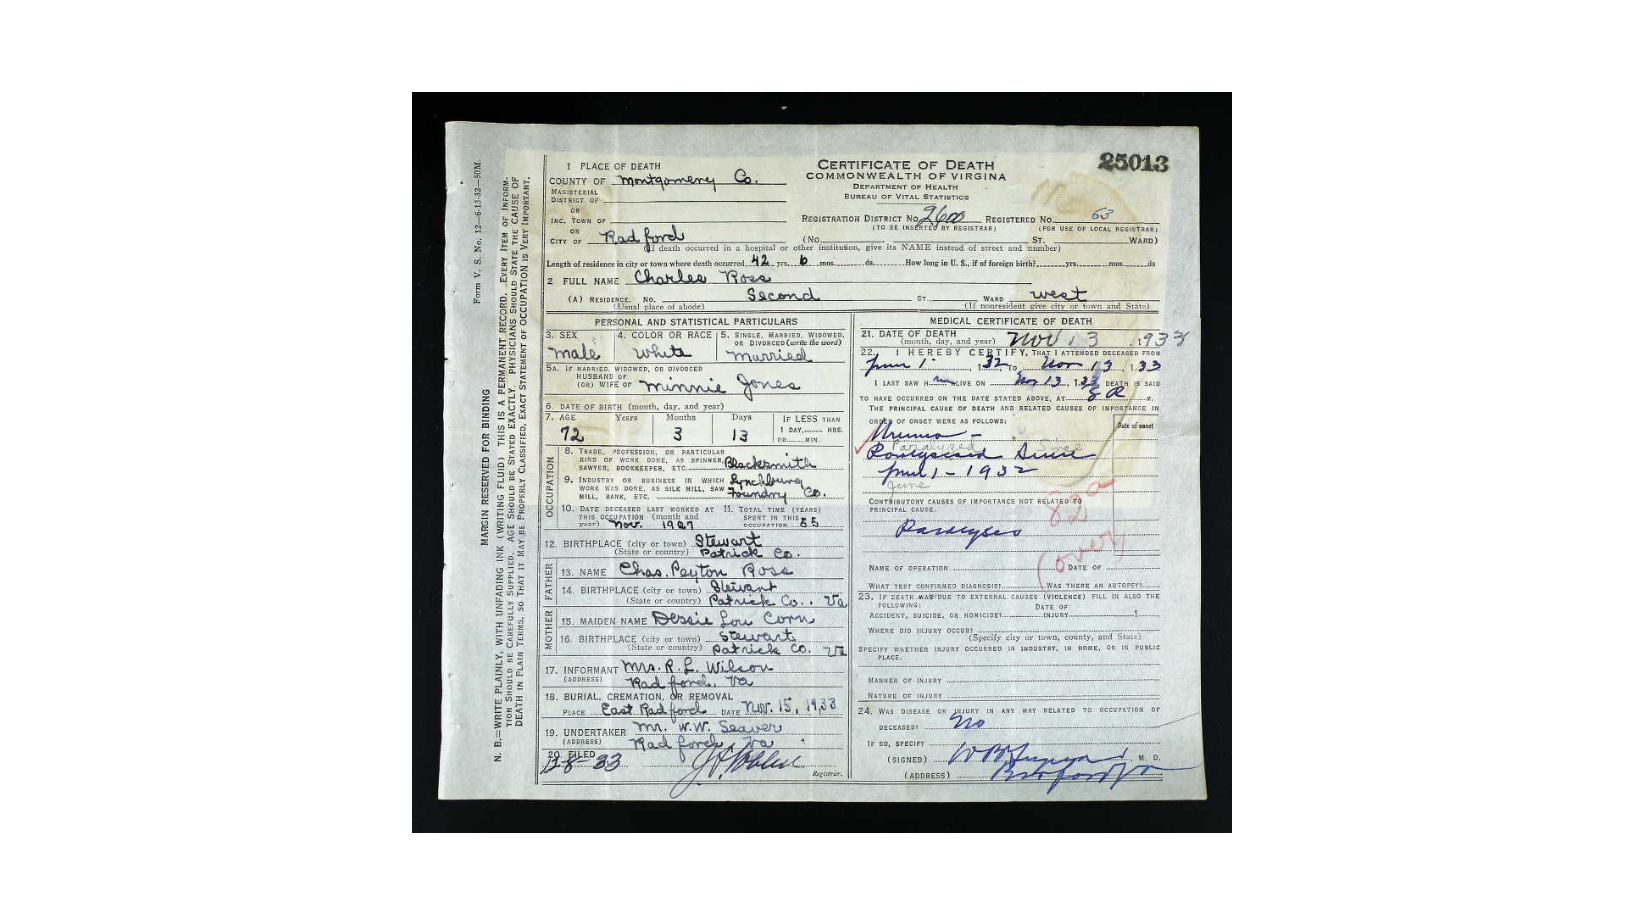 Form V. S. No. 12—6-13-32—50M.
MARGIN RESERVED FOR BINDING
N. B.—WRITE PLAINLY, WITH UNFADING INK (WRITING FLUID) THIS IS A PERMANENT RECORD. EVERY ITEM OF INFORM-
TION SHOULD BE CAREFULLY SUPPLIED. AGE SHOULD BE STATED EXACTLY. PHYSICIANS SHOULD STATE THE CAUSE OF
DEATH IN PLAIN TERMS, SO THAT IT MAY BE PROPERLY CLASSIFIED. EXACT STATEMENT OF OCCUPATION IS VERY IMPORTANT.
25013
CERTIFICATE OF DEATH
COMMONWEALTH OF VIRGINIA
DEPARTMENT OF HEALTH
BUREAU OF VITAL STATISTICS
1 PLACE OF DEATH
COUNTY OF Montgomery Co.
MAGISTERIAL
DISTRICT OF
OR
INC. TOWN OF
OR
CITY OF Radford
REGISTRATION DISTRICT NO. 2600 REGISTERED NO. 63
(TO BE INSERTED BY REGISTRAR) (FOR USE OF LOCAL REGISTRAR)
(No. ST. WARD)
(If death occurred in a hospital or other institution, give its NAME instead of street and number)
Length of residence in city or town where death occurred 42 yrs. 6 mos. ds. How long in U. S., if of foreign birth? yrs. mos. ds
2 FULL NAME Charles Ross
(A) RESIDENCE. NO. Second ST. WARD West
(Usual place of abode) (If nonresident give city or town and State)
PERSONAL AND STATISTICAL PARTICULARS
3. SEX 4. COLOR OR RACE 5. SINGLE, MARRIED, WIDOWED,
OR DIVORCED (write the word)
Male White Married
5A. IF MARRIED, WIDOWED, OR DIVORCED
HUSBAND OF
(OR) WIFE OF Minnie Jones
6. DATE OF BIRTH (month, day, and year)
7. AGE Years Months Days IF LESS THAN
72 3 13 1 DAY, HRS.
OR MIN.
OCCUPATION
8. TRADE, PROFESSION, OR PARTICULAR
KIND OF WORK DONE, AS SPINNER,
SAWYER, BOOKKEEPER, ETC. Blacksmith
9. INDUSTRY OR BUSINESS IN WHICH Lynchburg
WORK WAS DONE, AS SILK MILL, SAW
MILL, BANK, ETC. Foundry Co.
10. DATE DECEASED LAST WORKED AT 11. TOTAL TIME (YEARS)
THIS OCCUPATION (month and SPENT IN THIS
year) Nov. 1927 OCCUPATION 55
12. BIRTHPLACE (city or town) Stewart
(State or country) Patrick Co.
FATHER
13. NAME Chas. Peyton Ross
14. BIRTHPLACE (city or town) Stewart
(State or country) Patrick Co. Va
MOTHER
15. MAIDEN NAME Dessie Lou Corn
16. BIRTHPLACE (city or town) Stewart
(State or country) Patrick Co. Va
17. INFORMANT Mrs. R. L. Wilson
(ADDRESS) Radford, Va
18. BURIAL, CREMATION, OR REMOVAL
PLACE East Radford DATE Nov. 15, 1933
19. UNDERTAKER Mr. W. W. Seaver
(ADDRESS) Radford Va
20. FILED
12-8-33
Registrar.
MEDICAL CERTIFICATE OF DEATH
21. DATE OF DEATH
(month, day, and year) Nov 13, 1933
22. I HEREBY CERTIFY, THAT I ATTENDED DECEASED FROM
June 1 - 1932, TO Nov 13, 1933
I LAST SAW H im ALIVE ON Nov 13, 1933 DEATH IS SAID
TO HAVE OCCURRED ON THE DATE STATED ABOVE, AT 8 M.
THE PRINCIPAL CAUSE OF DEATH AND RELATED CAUSES OF IMPORTANCE IN
ORDER OF ONSET WERE AS FOLLOWS: Date of onset
Uremia -
Paralyzed Since
Paralyzed Since
June 1 - 1932
June
CONTRIBUTORY CAUSES OF IMPORTANCE NOT RELATED TO
PRINCIPAL CAUSE:
82a
Paralysis
(over)
NAME OF OPERATION DATE OF
WHAT TEST CONFIRMED DIAGNOSIS? WAS THERE AN AUTOPSY?
23. IF DEATH WAS DUE TO EXTERNAL CAUSES (VIOLENCE) FILL IN ALSO THE
FOLLOWING: DATE OF
ACCIDENT, SUICIDE, OR HOMICIDE? INJURY
WHERE DID INJURY OCCUR?
(Specify city or town, county, and State)
SPECIFY WHETHER INJURY OCCURRED IN INDUSTRY, IN HOME, OR IN PUBLIC
PLACE.
MANNER OF INJURY
NATURE OF INJURY
24. WAS DISEASE OR INJURY IN ANY WAY RELATED TO OCCUPATION OF
DECEASED? No
IF SO, SPECIFY
(SIGNED) M. D.
(ADDRESS) Radford Va